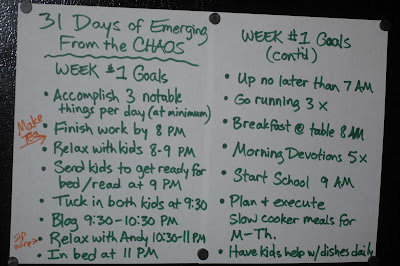 31 Days of Emerging
From the CHAOS
WEEK #1 Goals
• Accomplish 3 notable
things per day (at minimum)
Make
Tea
• Finish work by 8 PM
• Relax with kids 8-9 PM
• Send kids to get ready for
bed/read at 9 PM
• Tuck in both kids at 9:30
• Blog 9:30-10:30 PM
sip
wine
• Relax with Andy 10:30-11 PM
• In bed at 11 PM
WEEK #1 Goals
(cont'd)
• Up no later than 7 AM
• Go running 3x
• Breakfast @ table 8AM
• Morning Devotions 5x
• Start School 9 AM
• Plan & execute
slow cooker meals for
M-Th.
• Have kids help w/dishes daily